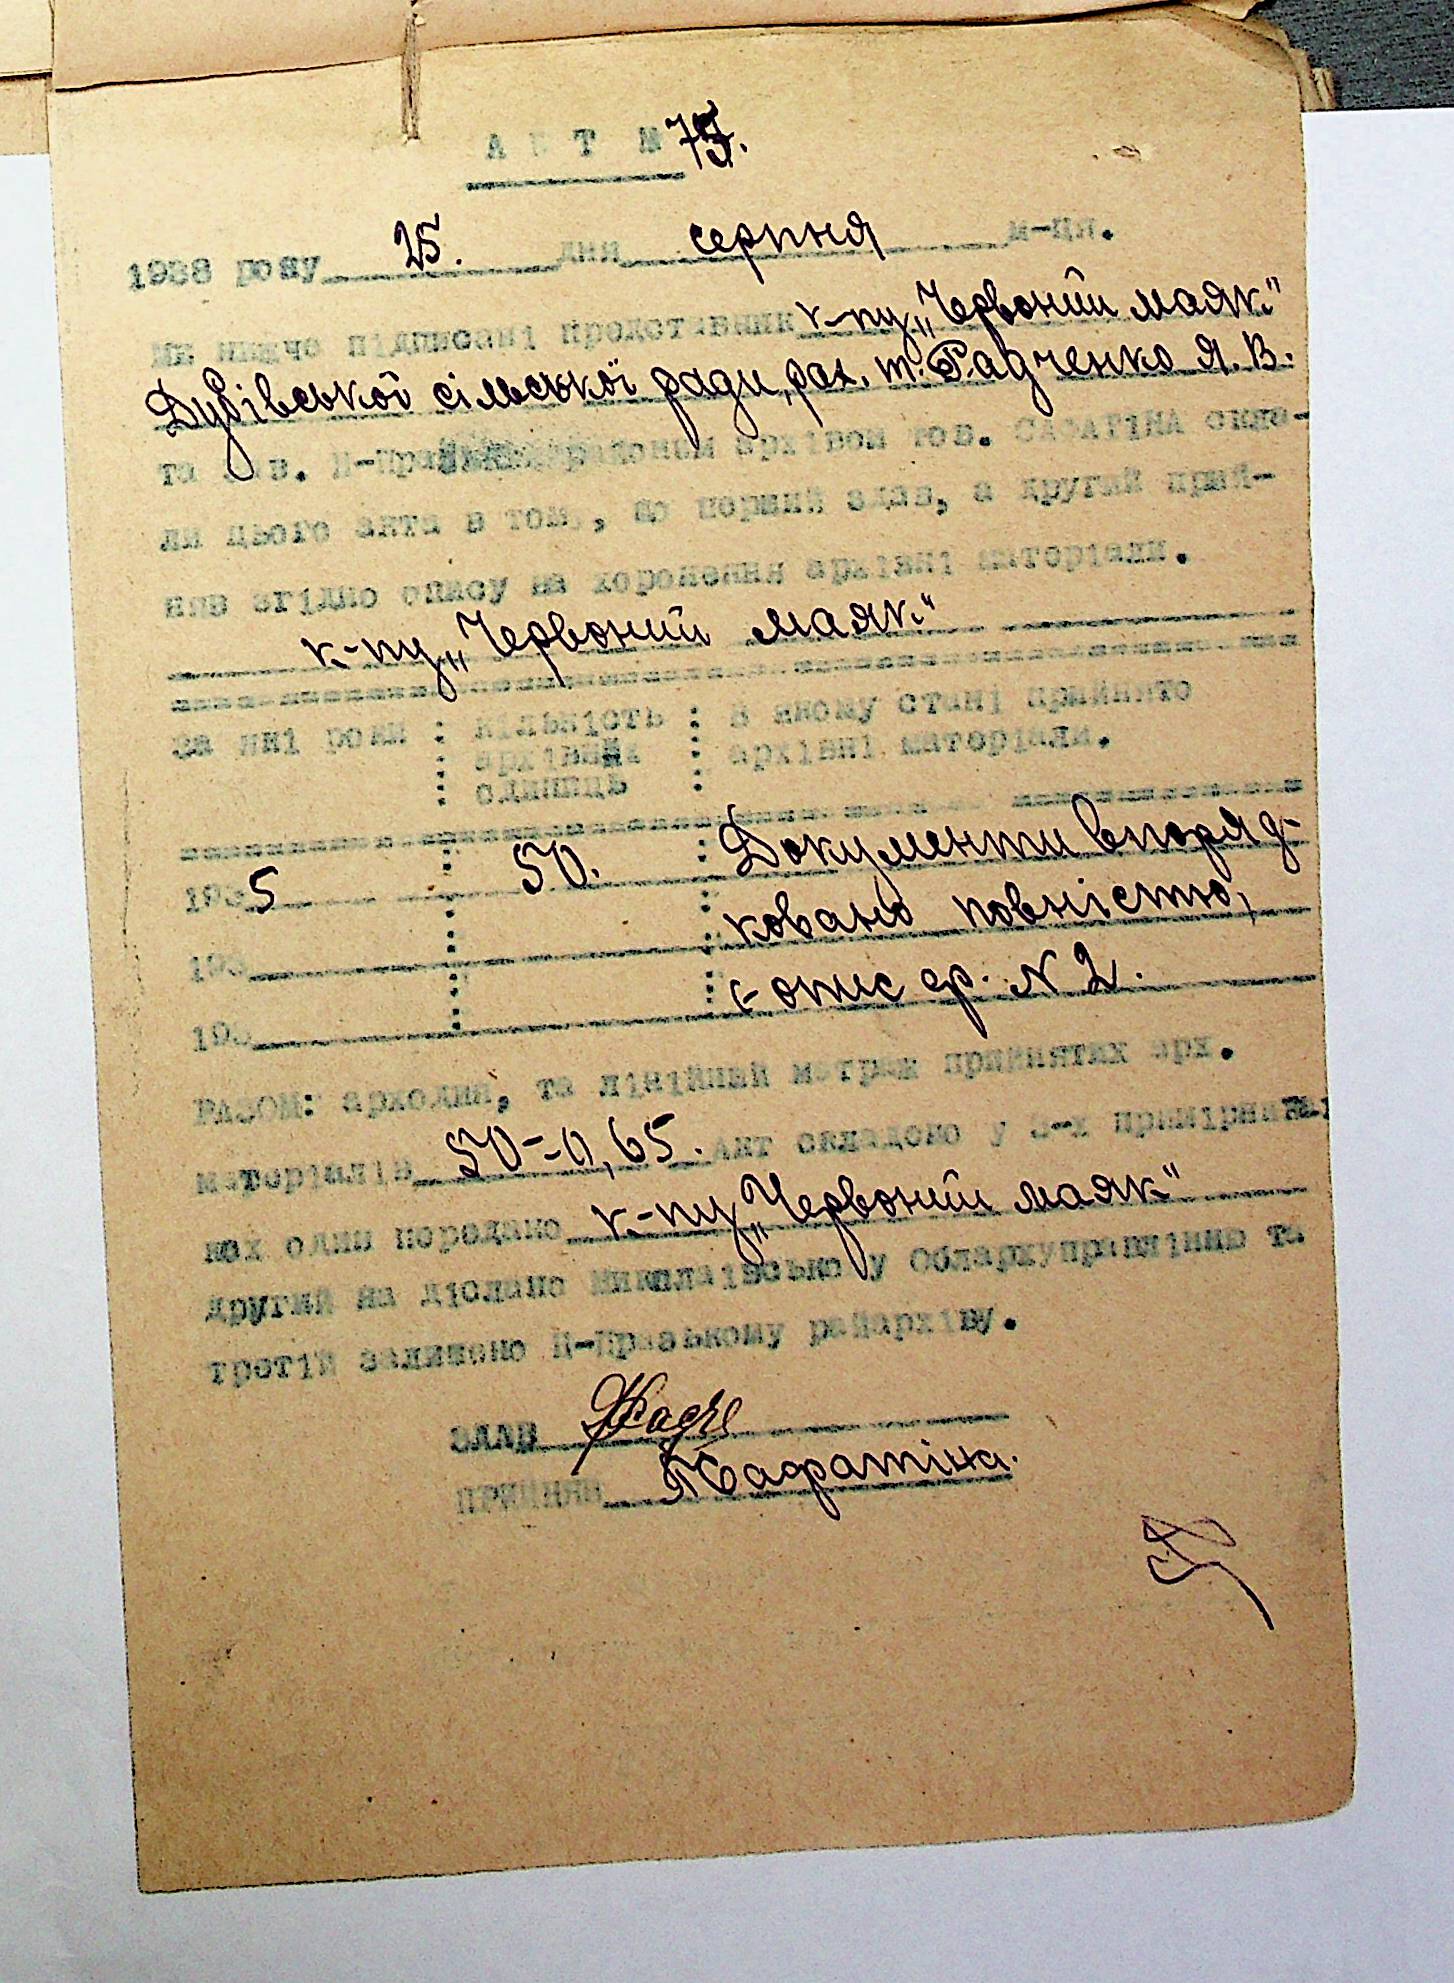 АКТ № 75.
1938 року 25. дня серпня м-ця.
Ми нижче підписані представник к-пу „Червоний маяк"
Дубівської сільської ради, рах. т. Радченко Я. В.
та зав. Н-Пра архівом тов. САФАТІНА скла-
ли цього акта в тому, що перший здав, а другий прий-
няв згідно опису на хоронення архівні матеріали.
к-пу „Червоний маяк"
За які роки : кількість : В якому стані прийнято
архівних архівні матеріали.
одиниць
1935 50. Документи впоряд-
193 ковано повністю,
193 опис ф. N 2.
РАЗОМ: арходин, та лінійний метраж прийнятих арх.
матеріалів 50-0,65. Акт складено у 3-х примірниках
ках один передано к-пу „Червоний маяк"
другий на діслано Миколаївському Облархуправлінню та
третій залишено Н-Празькому райархіву.
ЗДАВ Радч
ПРИЙНЯВ Сафатіна.